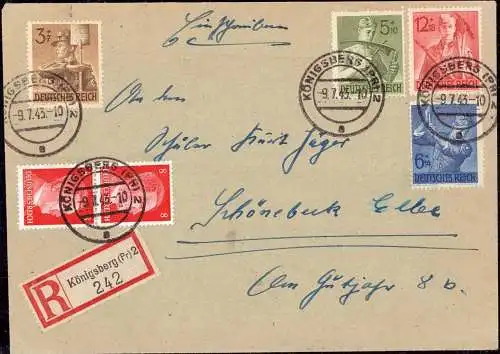 3+7
DEUTSCHES REICH
Einschreiben
5+10
DEUTSCHES REICH
12+18
DEUTSCHES REICH
6+14
DEUTSCHES REICH
KÖNIGSBERG (PR) 2
-9.7.43.-10
a
KÖNIGSBERG (PR) 2
-9.7.43.-10
a
KÖNIGSBERG (PR) 2
a
KÖNIGSBERG (PR) 2
-9.7.43.-10
a
An den
Schüler Kurt Jäger
DEUTSCHES REICH
8
8
Schönebeck Elbe
Am Gutjahr 8 b.
R
Königsberg (Pr) 2
242